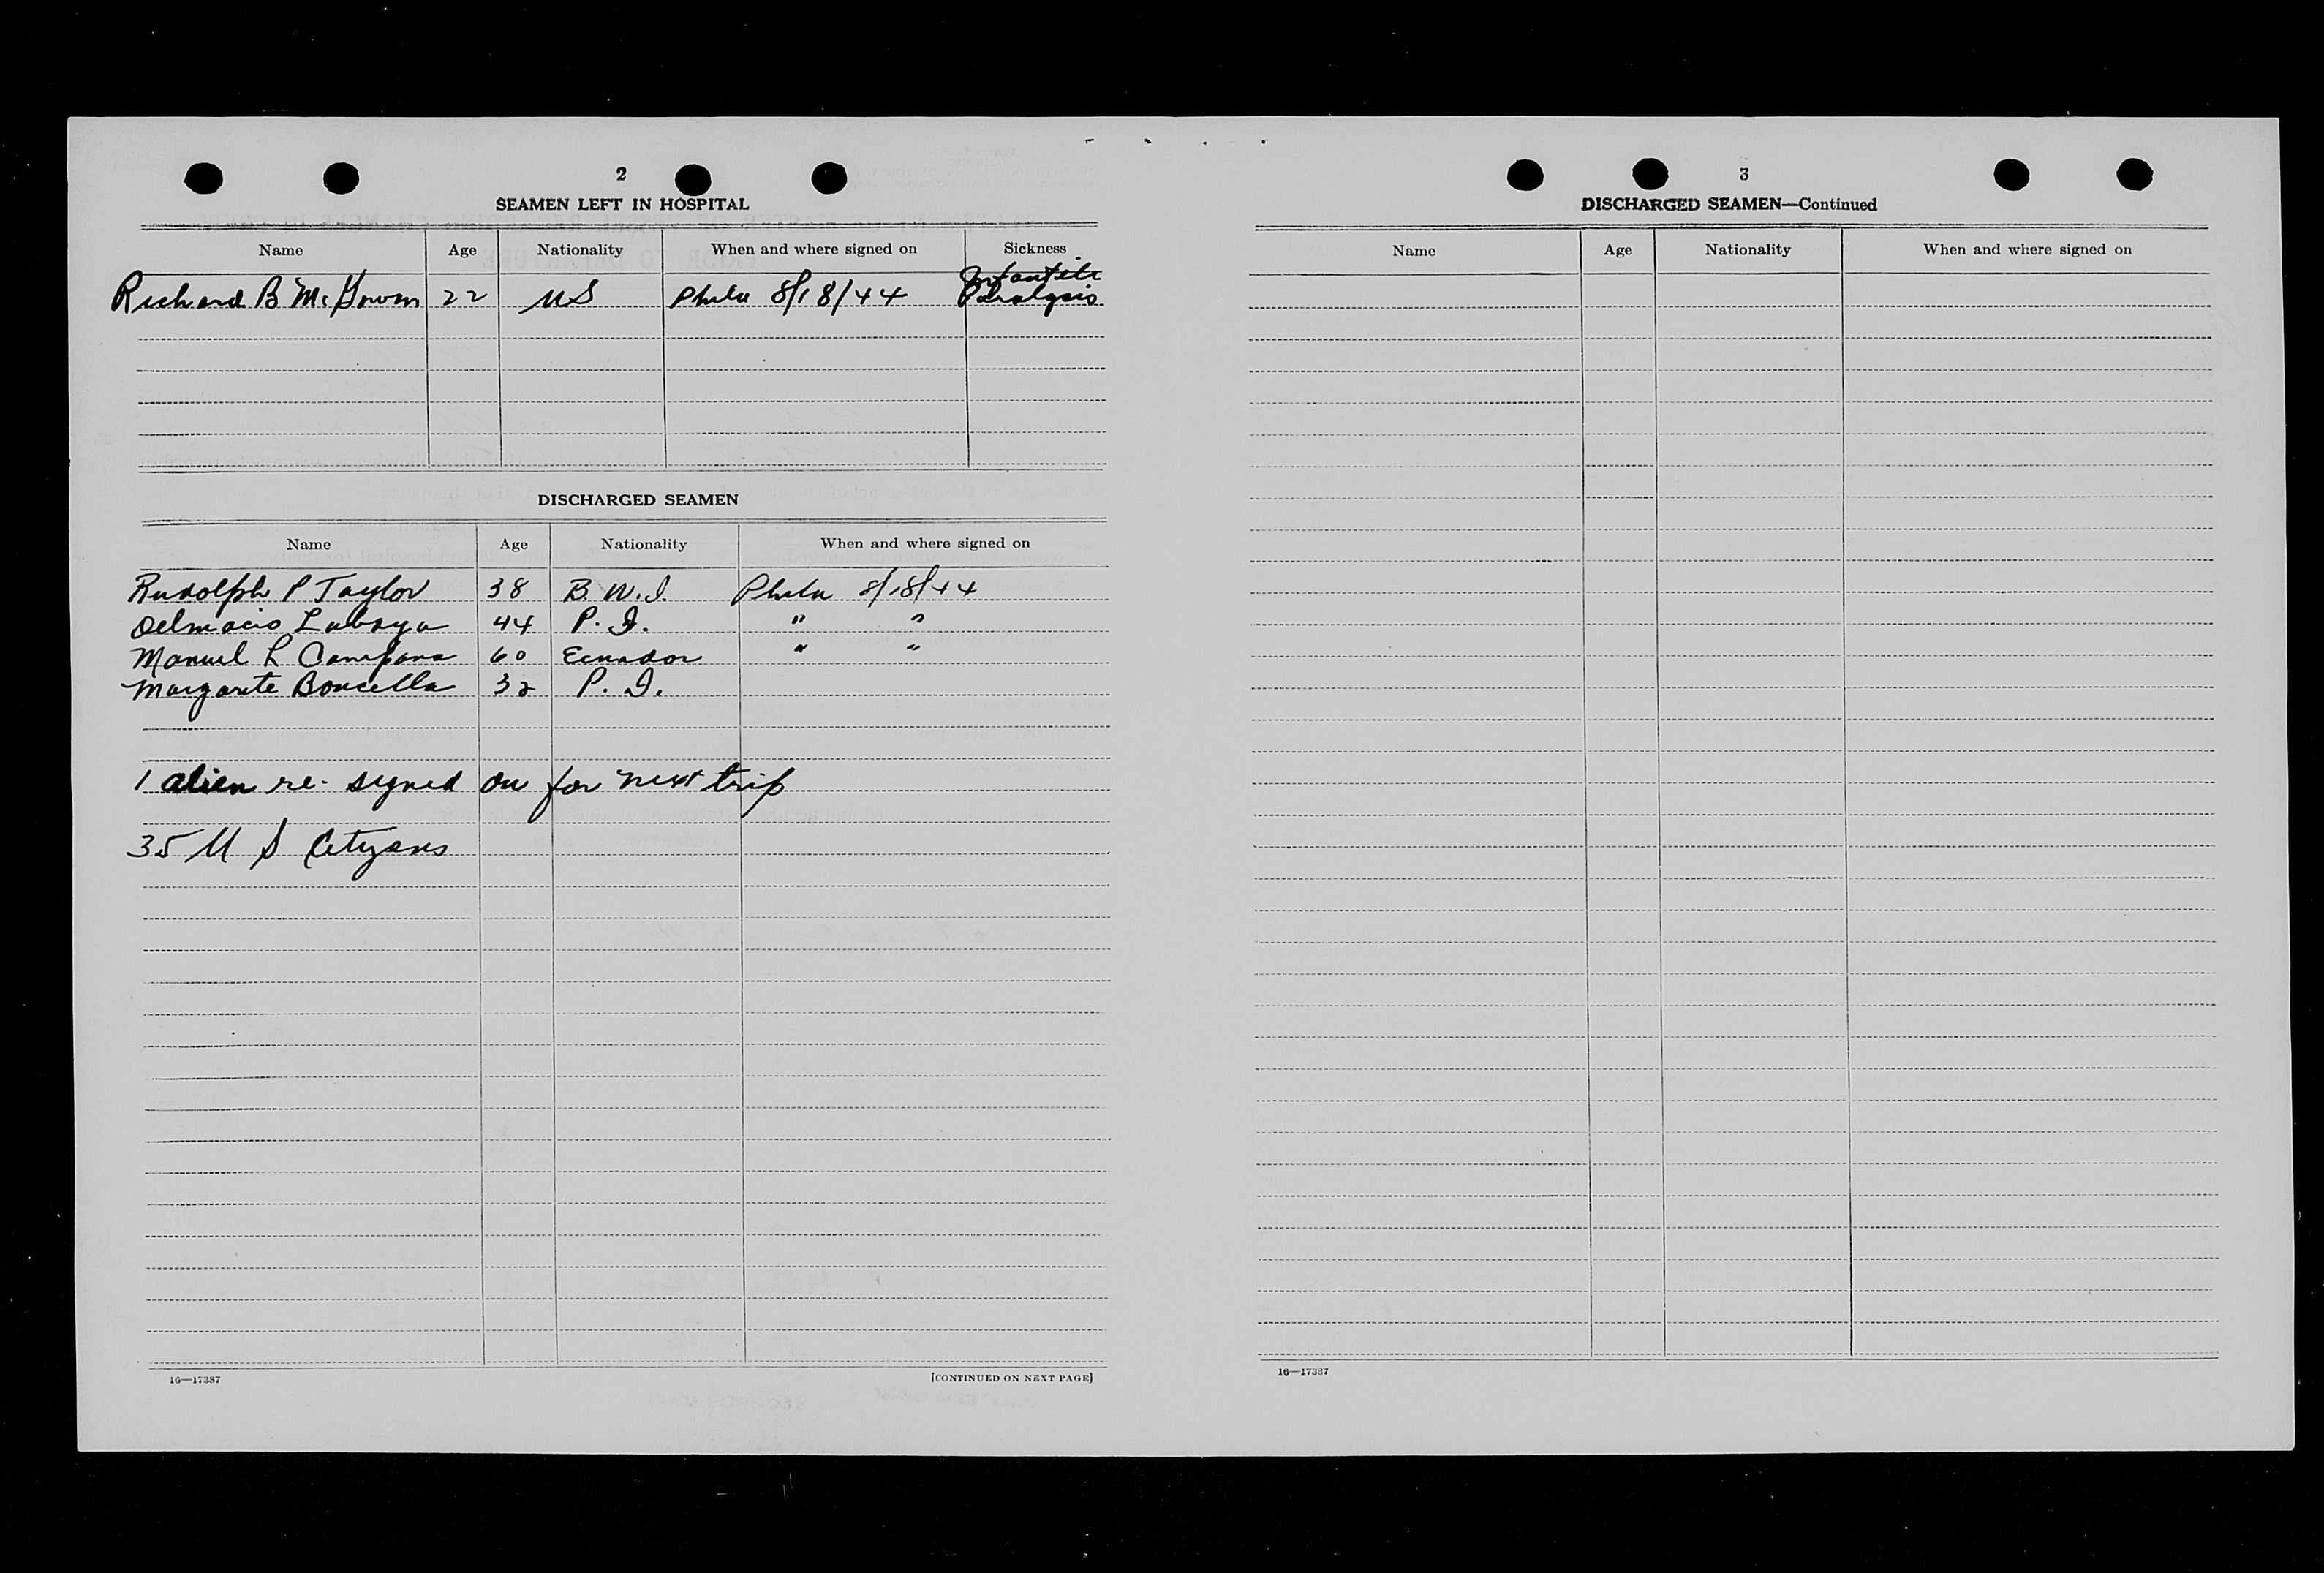 2
SEAMEN LEFT IN HOSPITAL
Name Age Nationality When and where signed on Sickness
Richard B McGowan 22 US Phila 8/18/44 Infantile Paralysis
DISCHARGED SEAMEN
Name Age Nationality When and where signed on
Rudolph P Taylor 38 B.W.I. Phila 8/18/44
44 P.I. " "
Manuel L Campana 60 Ecuador " "
Margarito Boncella 32 P.I.
1 alien re-signed on for next trip
35 U S Citizens
16—17387
[CONTINUED ON NEXT PAGE]
3
DISCHARGED SEAMEN—Continued
Name Age Nationality When and where signed on
16—17387